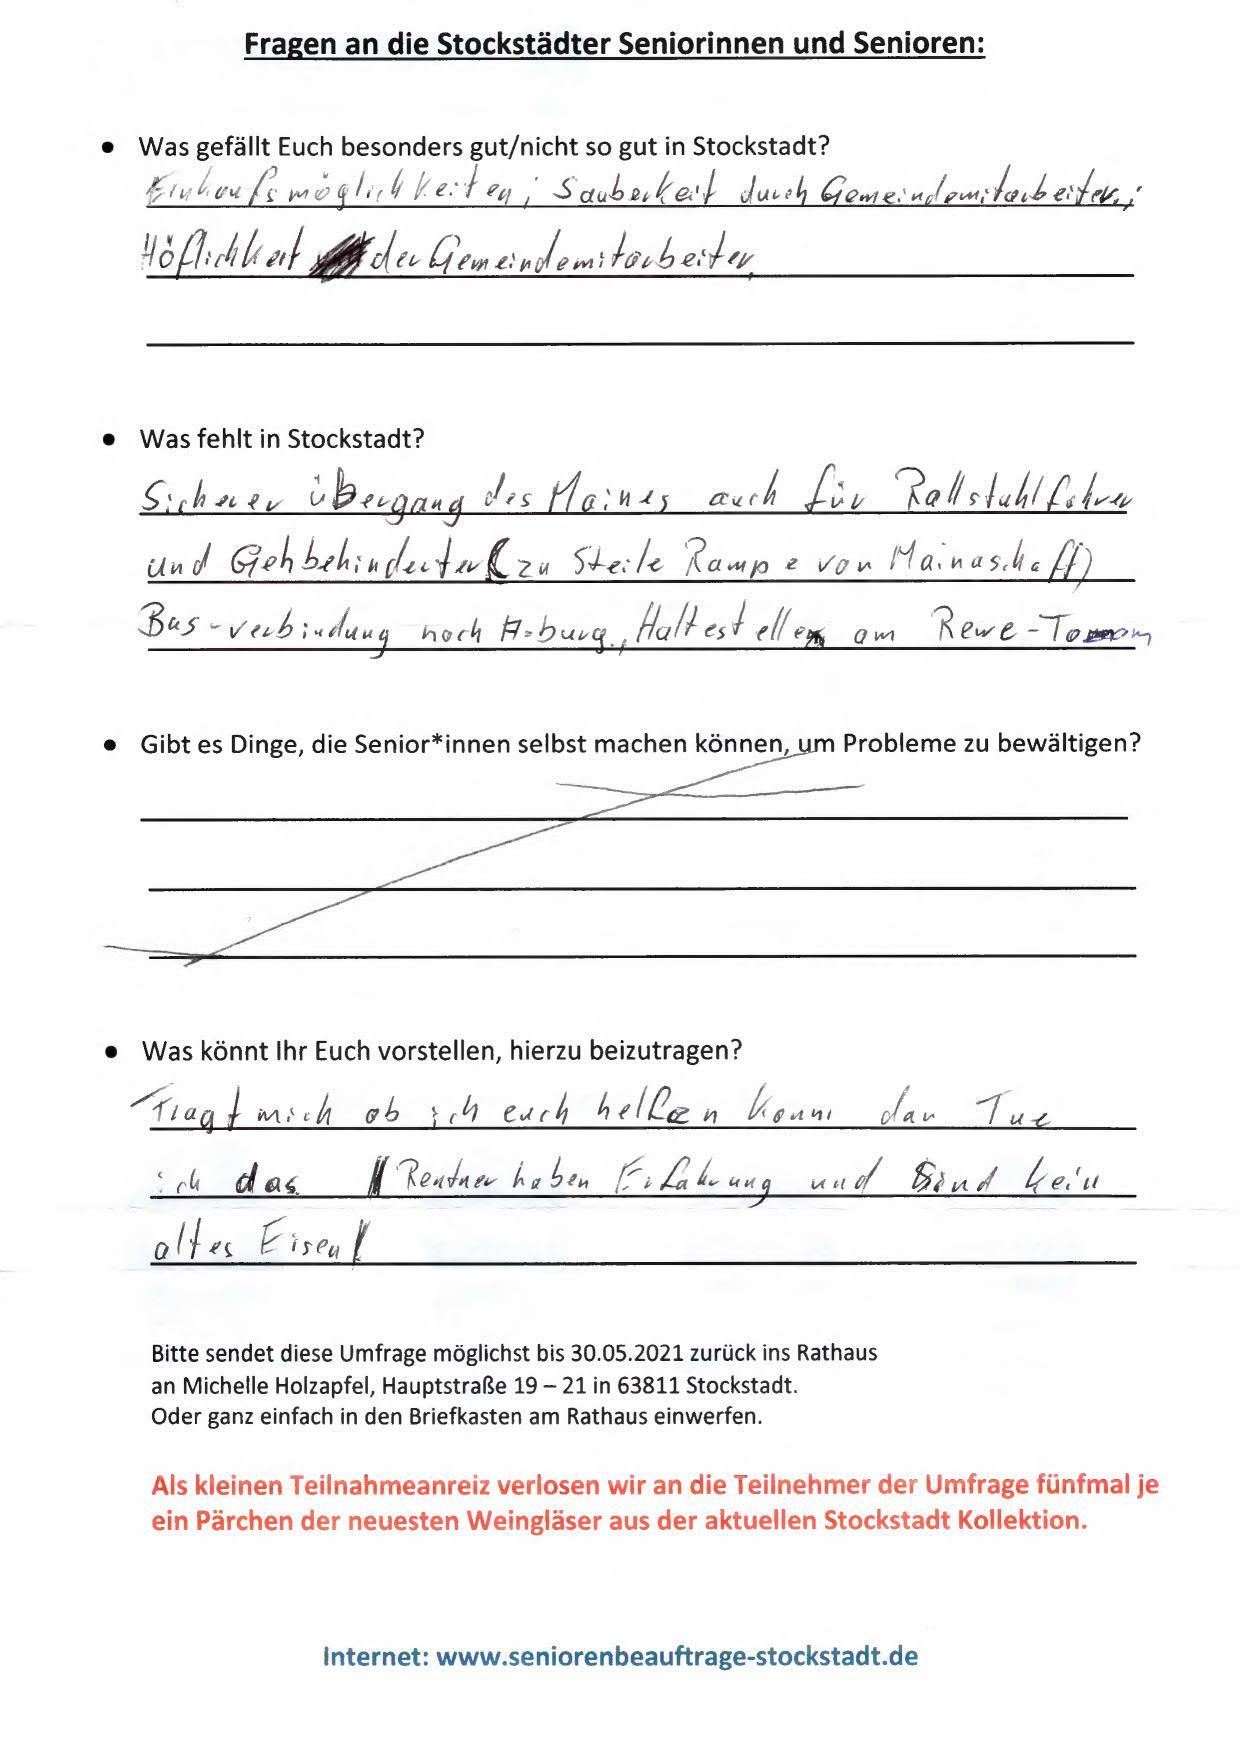 Fragen an die Stockstädter Seniorinnen und Senioren:
• Was gefällt Euch besonders gut/nicht so gut in Stockstadt?
Einkaufsmöglichkeiten; Sauberkeit durch Gemeindemitarbeiter;
Höflichkeit der Gemeindemitarbeiter
• Was fehlt in Stockstadt?
Sicherer übergang des Maines auch für Rollstuhlfahrer
und Gehbehinderter (zu Steile Rampe von Mainaschaff)
Bus-verbindung nach A-burg, Haltestelle am Rewe-
• Gibt es Dinge, die Senior*innen selbst machen können, um Probleme zu bewältigen?
• Was könnt Ihr Euch vorstellen, hierzu beizutragen?
Fragt mich ob ich euch helfen kann dan Tue
ich das Rentner haben Erfahrung und Sind kein
altes Eisen!
Bitte sendet diese Umfrage möglichst bis 30.05.2021 zurück ins Rathaus
an Michelle Holzapfel, Hauptstraße 19 – 21 in 63811 Stockstadt.
Oder ganz einfach in den Briefkasten am Rathaus einwerfen.
Als kleinen Teilnahmeanreiz verlosen wir an die Teilnehmer der Umfrage fünfmal je
ein Pärchen der neuesten Weingläser aus der aktuellen Stockstadt Kollektion.
Internet: www.seniorenbeauftrage-stockstadt.de